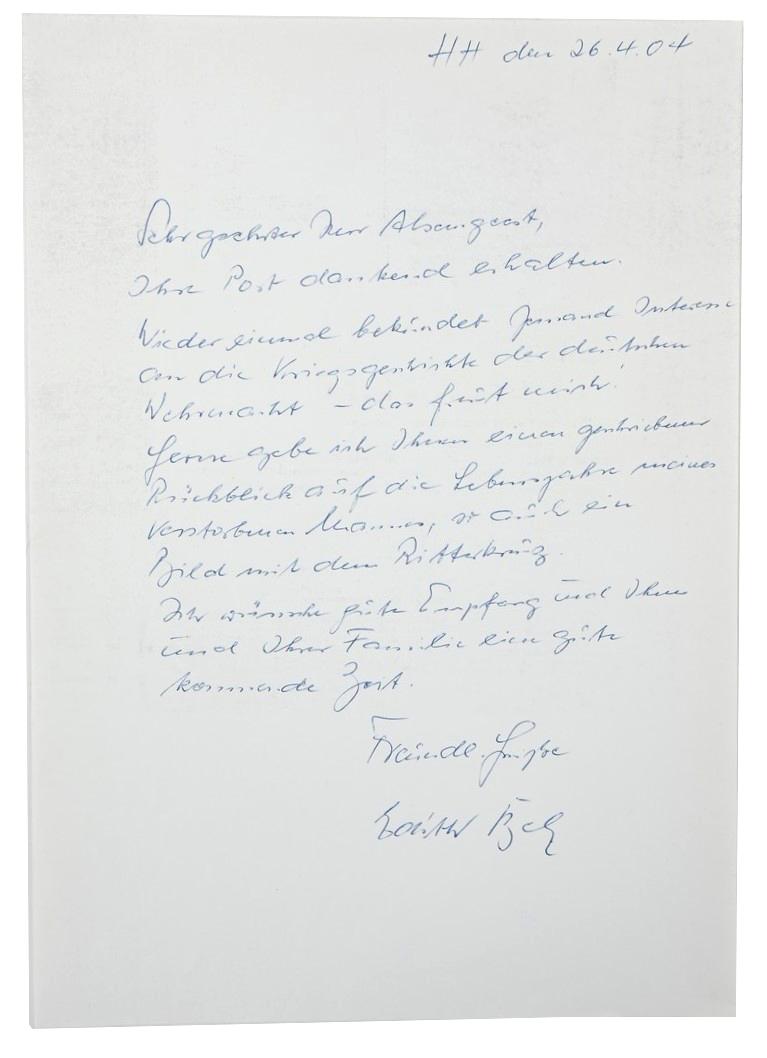 HH den 26.4.04
Sehr geehrter Herr
Ihre Post dankend erhalten.
Wieder einmal bekundet jemand Interesse
an die Kriegsgeschichte der deutschen
Wehrmacht – das freut mich!
Gerne gebe ich Ihnen einen geschriebenen
Rückblick auf die Lebensjahre meines
verstorbenen Mannes, so auch ein
Bild mit dem Ritterkreuz.
Ich wünsche gute Empfang und Ihnen
und Ihrer Familie eine gute
kommende Zeit.
Freundl. Grüße